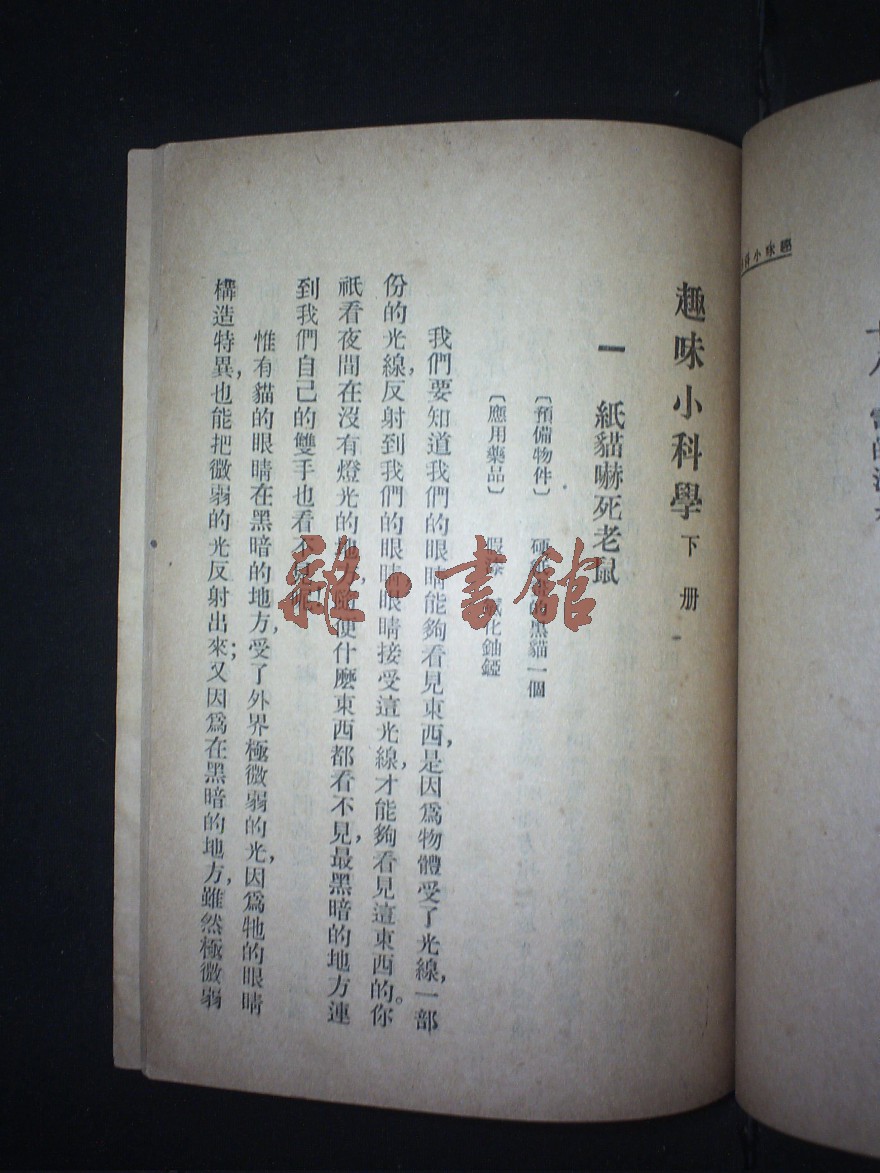 趣味小科
趣味小科學 下册
一 紙貓嚇死老鼠
〔預備物件〕 硬 的黑貓一個
〔應用藥品〕 化鈾鎠
我們要知道我們的眼睛能夠看見東西，是因爲物體受了光線，一部
份的光線，反射到我們的眼睛眼睛接受這光線，才能夠看見這東西的。你
祇看夜間在沒有燈光的地方，隨便什麽東西都看不見，最黑暗的地方連
到我們自己的雙手也看不見
惟有貓的眼睛在黑暗的地方，受了外界極微弱的光，因爲牠的眼睛
構造特異，也能把微弱的光反射出來；又因爲在黑暗的地方，雖然極微弱
雜·書館